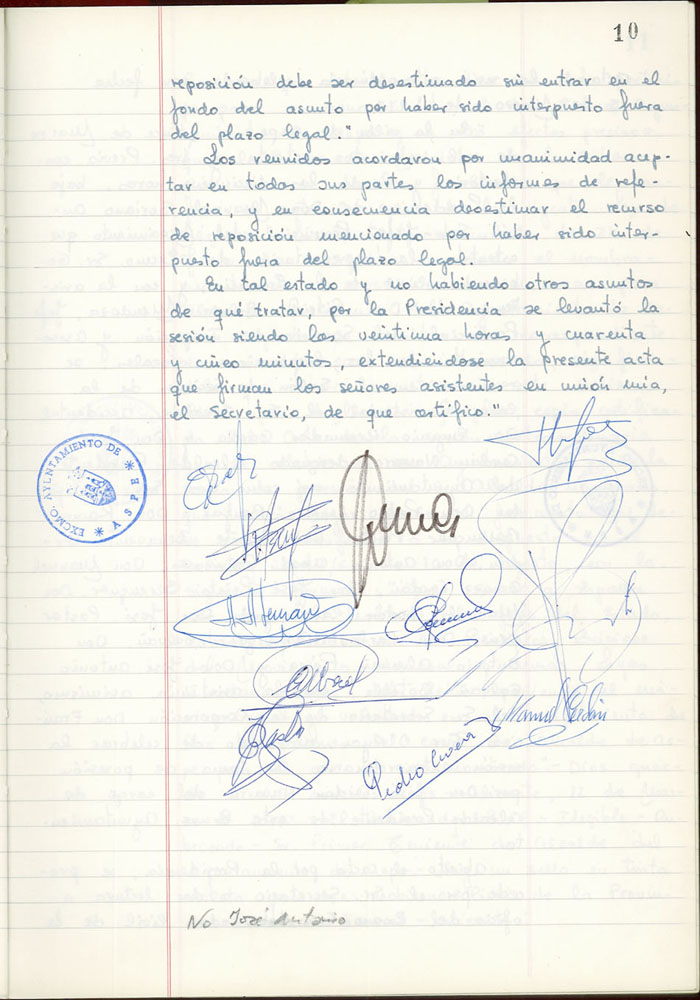 10
reposición debe ser desestimado sin entrar en el
fondo del asunto por haber sido interpuesto fuera
del plazo legal."
Los reunidos acordaron por unanimidad acep-
tar en todas sus partes los informes de refe-
rencia, y en consecuencia desestimar el recurso
de reposición mencionado por haber sido inter-
puesto fuera del plazo legal.
En tal estado y no habiendo otros asuntos
de qué tratar, por la Presidencia se levantó la
sesión siendo las veintiuna horas y cuarenta
y cinco minutos, extendiéndose la presente acta
que firman los señores asistentes en unión mía,
el Secretario, de que certifico."
EXCMO. AYUNTAMIENTO DE
ASPE
Pedro
Manuel
No José Antonio